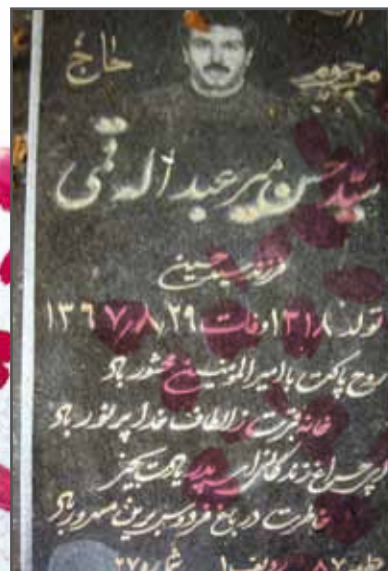 مرحوم حاج
سید حسن میر عبداله قمی
فرزند سید حسین
تولد ۱۳۱۸ وفات ۱۳۶۷٫۸٫۲۹
روح پاکت با امیرالمؤمنین محشور باد
خانه قبرت ز الطاف خدا پر نور باد
ای چراغ زندگانی ای پدر یادت بخیر
خاطرت در باغ فردوس برین مسرور باد
ردیف ۱ شماره ۲۷